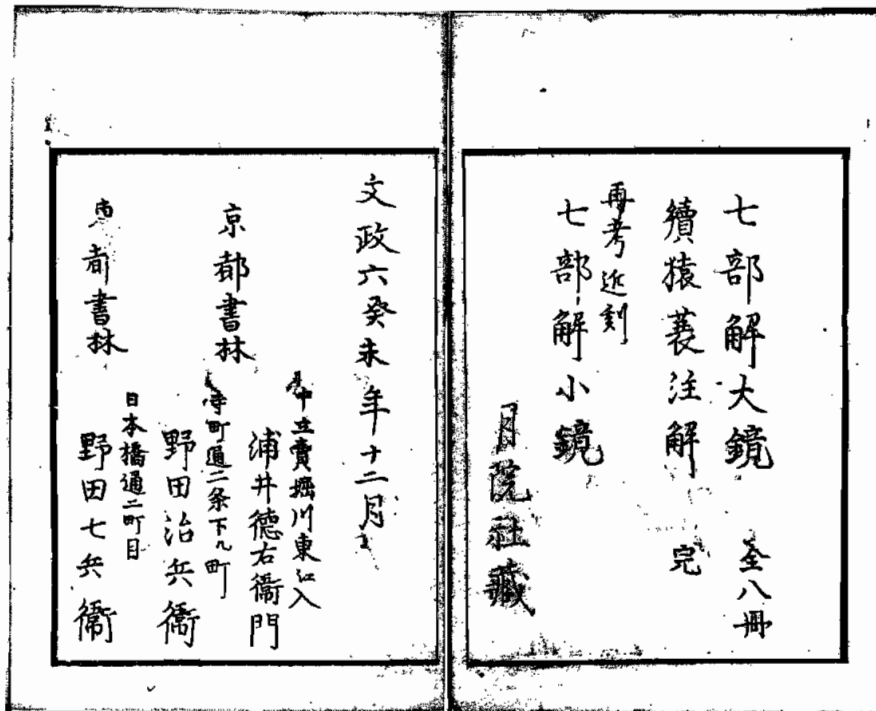 七部解大鏡 全八冊
續猿蓑注解 完
再考近刻
七部解小鏡
月院社藏
文政六癸未年十二月
京都書林
中立賣堀川東江入
浦井徳右衞門
寺町通二条下ル町
野田治兵衞
都書林
日本橋通二町目
野田七兵衞